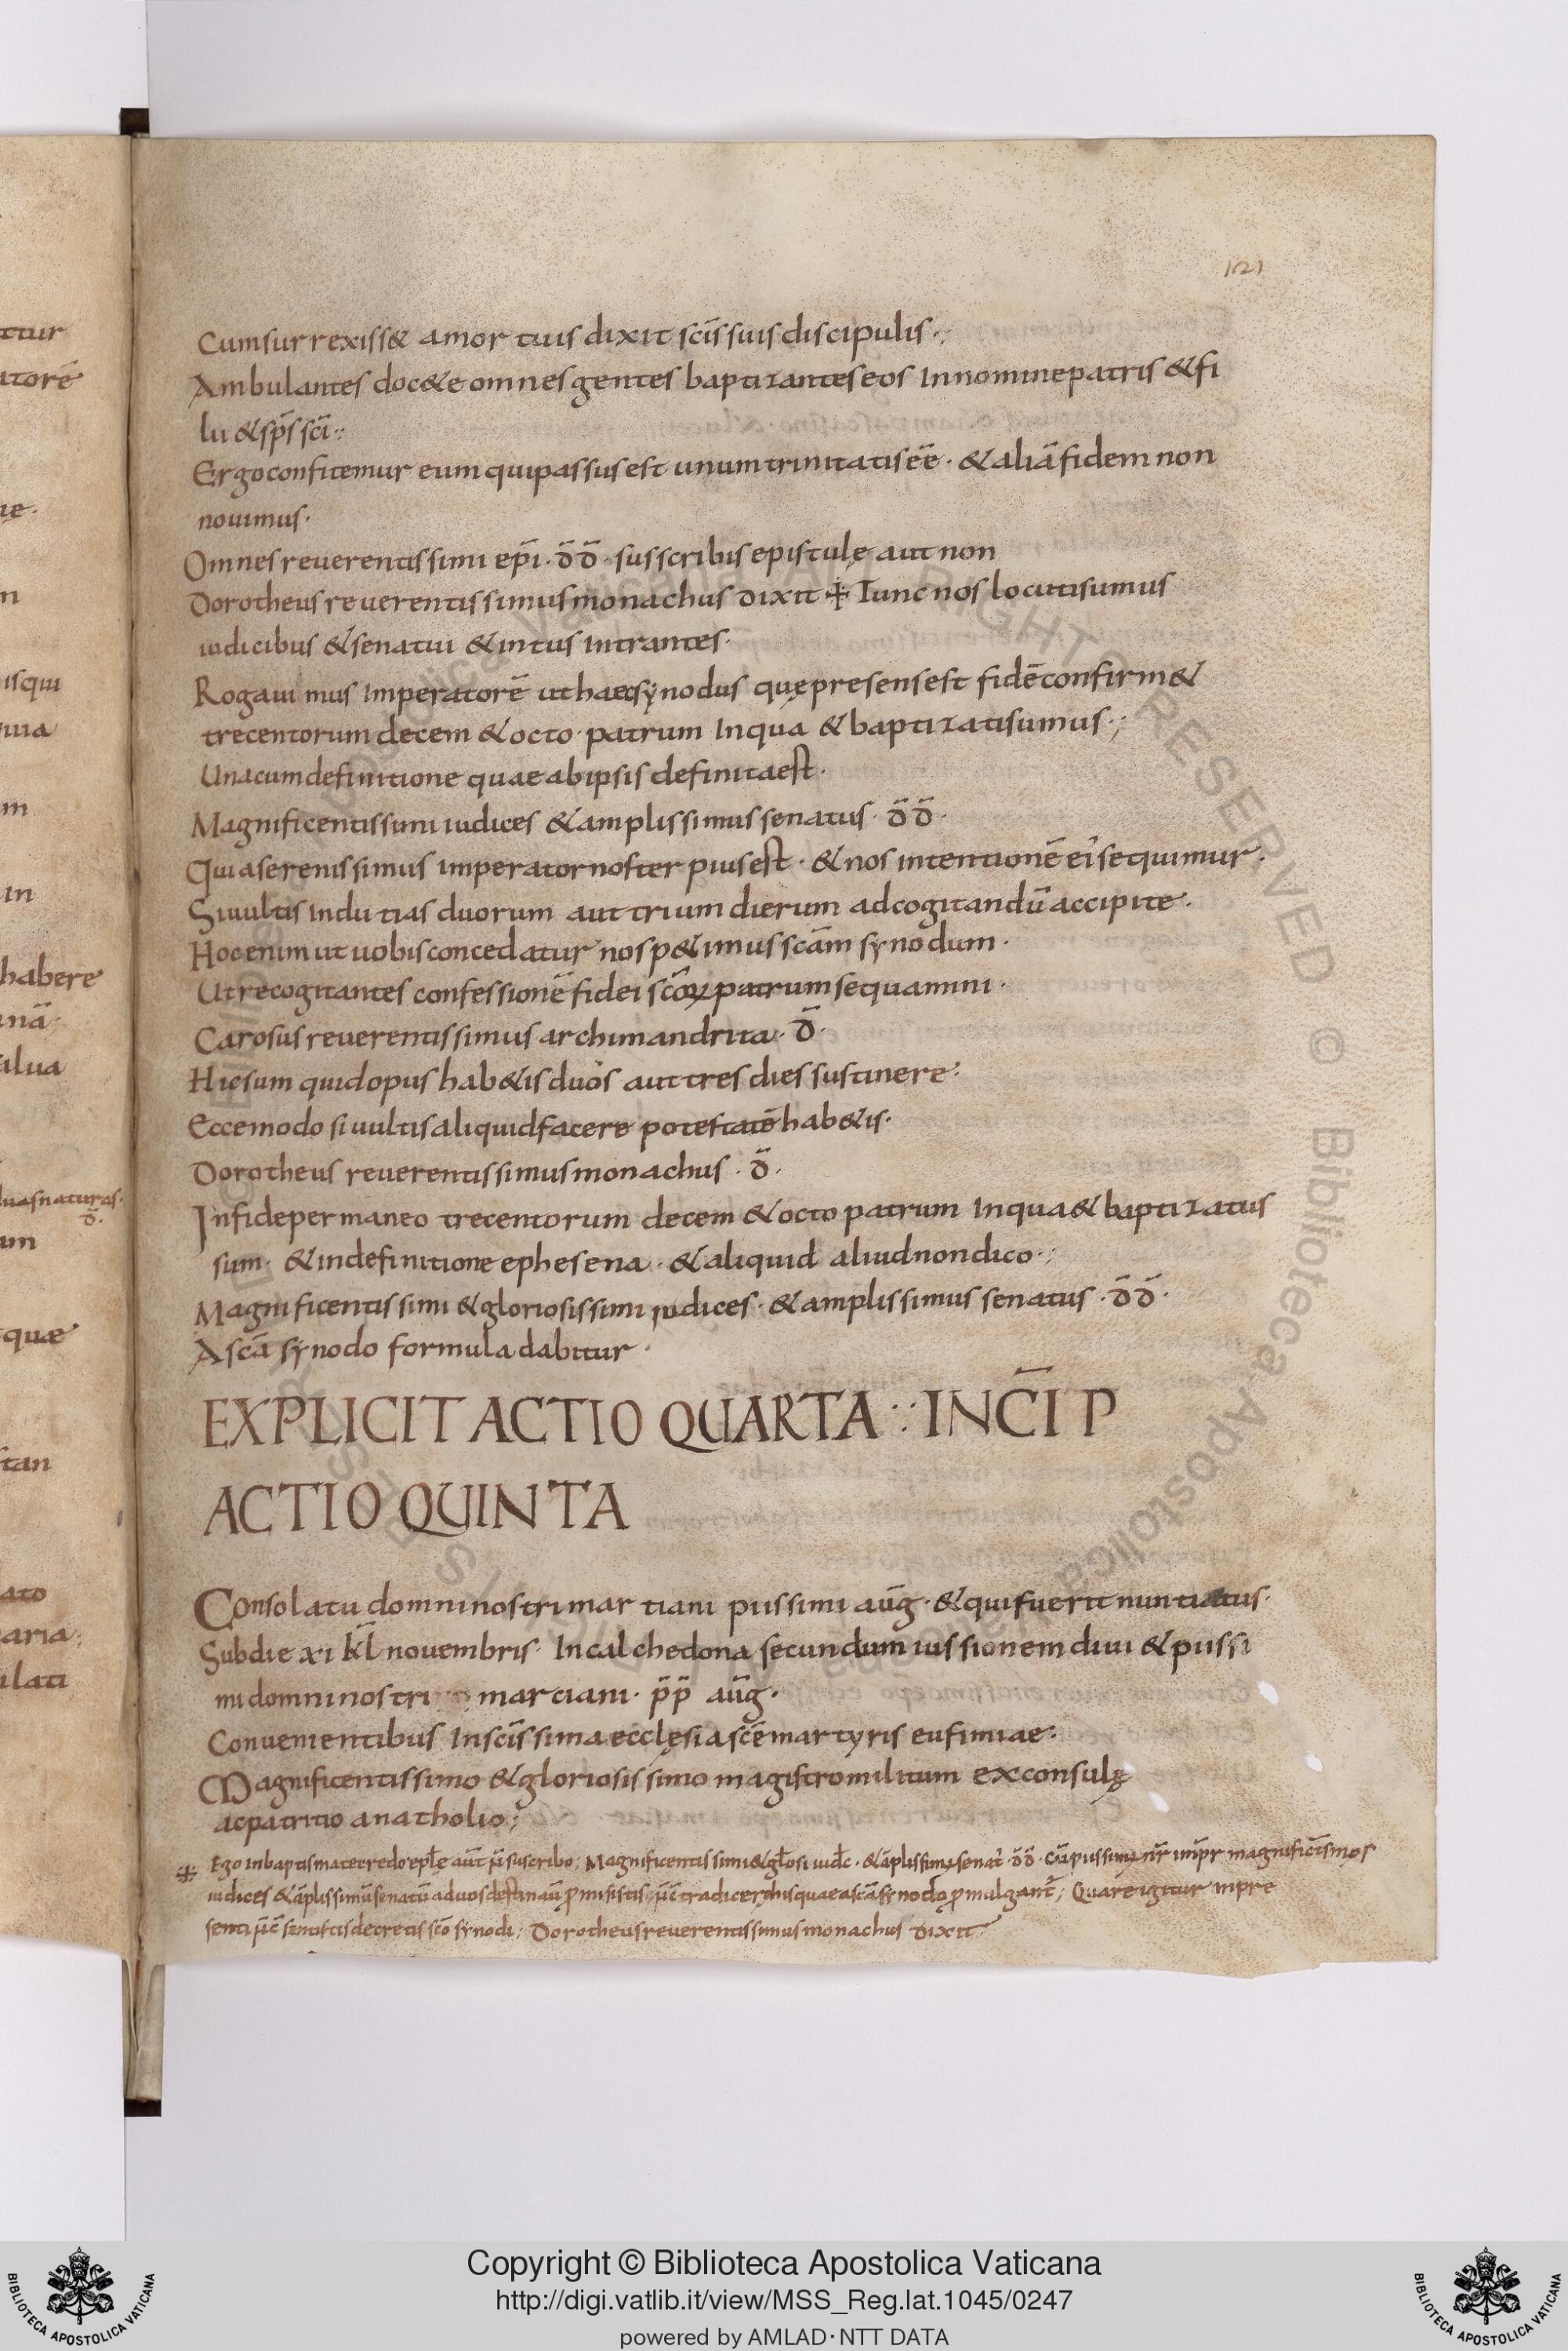 121
Cum surrexiss& amortuis dixit scīs suis discipulis·,
Ambulantes doc&e omnes gentes baptizantes eos In nomine patris & fi
lii & sps̄ sci̅··
Ergo confitemur eum qui passus est unum trinitatis ēē· & aliā fidem non
nouimus·
Omnes reuerentissimi epi̅· d̄d̄· susscribis epistulę aut non
Dorotheus reuerentissimus monachus dixit ⁜ Tunc nos locuti sumus
iudicibus & senatui & intus intrantes·
Rogauimus Imperatorē ut haec synodus quę presens est fidē confirm&
trecentorum decem & octo patrum In qua & baptizati sumus·,
Una cum definitione quae ab ipsis definita est·
Magnificentissimi iudices & amplissimus senatus· d̄d̄·
Quia serenissimus imperator noster pius est· & nos intentionē ei' sequimur·
Si uultis Indutias duorum aut trium dierum ad cogitandū accipite·
Hoc enim ut uobis concedatur nos p&imus scām synodum·
Ut recogitantes confessionē fidei scōꝝ patrum sequamini·
Carosus reuerentissimus archimandrita· d̄·
Hic sum quid opus hab&is duos aut tres dies sustinere·
Ecce modo si uultis aliquid facere potestatē hab&is·
Dorotheus reuerentissimus monachus· d̄·
In fide permaneo trecentorum decem & octo patrum In qua & baptizatus
sum· & in definitione ephesena· & aliquid aliud non dico·,
Magnificentissimi & gloriosissimi iudices· & amplissimus senatus· d̄d̄·
A scā synodo formula dabitur·
EXPLICIT ACTIO QUARTA ·:· INCI̅P
ACTIO QUINTA
Consolatu domni nostri martiani piissimi aūg· & qui fuerit nuntiatus·
Sub die xi kl̄ nouembris· In calchedona secundum iussionem diui & piissi
mi domni nostri marciani· p̄p̄ aūg·
Conuenientibus In scīssima ecclęsia scē martyris eufimiae·
Magnificentissimo & gloriosissimo magistro militum ex consulę
ac patritio anatholio;
⁜ Ego In baptismate credo· epłe aut̄ suscribo; Magnificentissimi & głosi iudc̄· & āplissimꝰ senat'· d̄d̄· Cū piissimꝰ nr̄ imp̄r magnificēs mos
iudices & āplissimū senatū ad uos destinaū promisistis tradice his quae a scā synodo promulgant̄; Quare igitur in pre
senti decretis scō synodi; Dorotheus reuerentissimus monachus dixit
Copyright © Biblioteca Apostolica Vaticana
http://digi.vatlib.it/view/MSS_Reg.lat.1045/0247
powered by AMLAD·NTT DATA